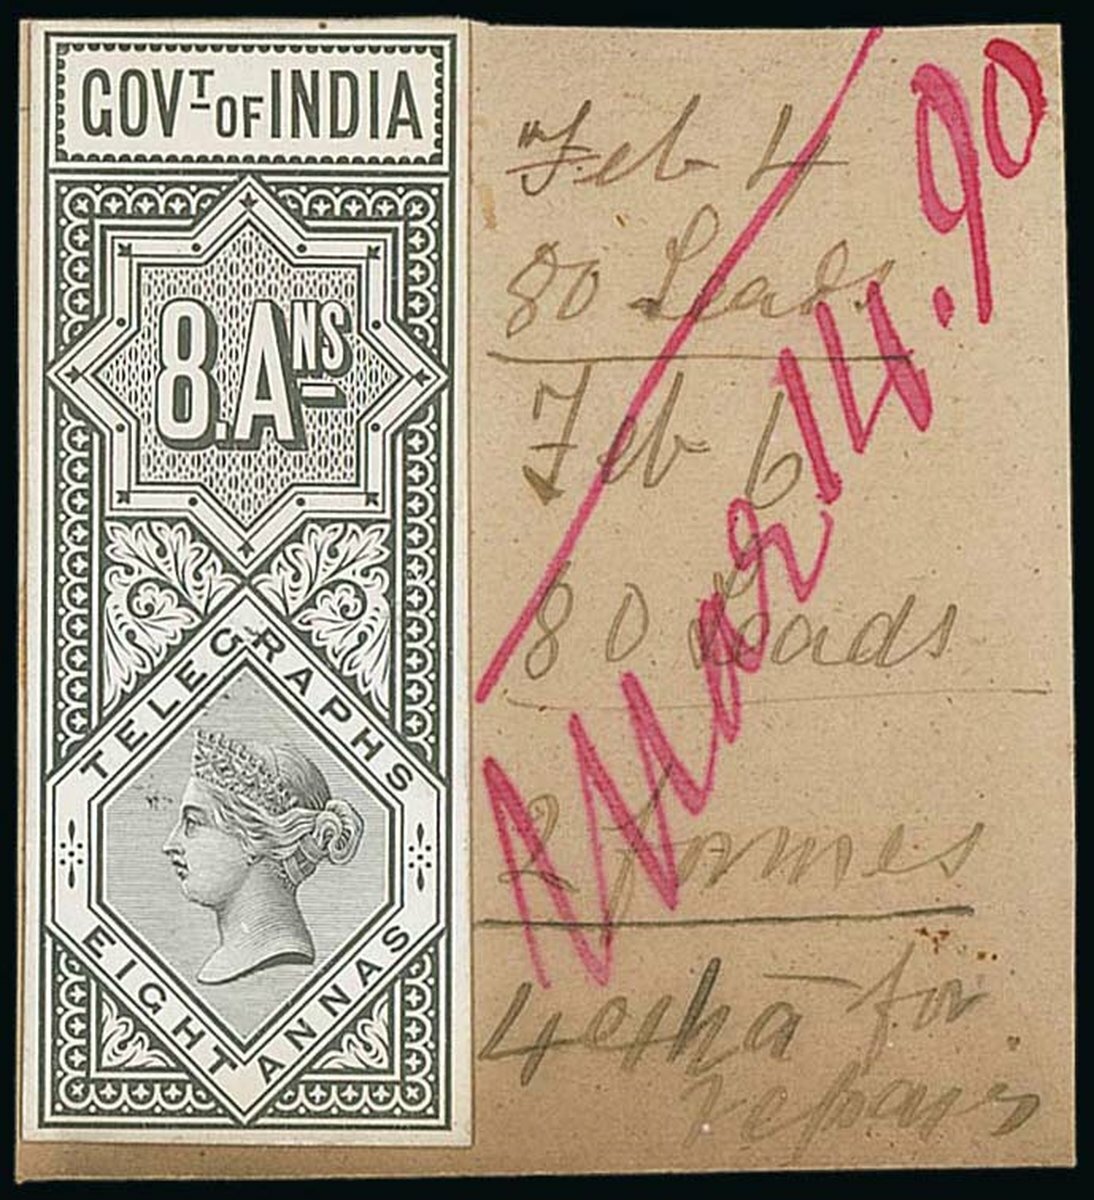 GOVT OF INDIA
8.ANS
TELEGRAPHS
EIGHT ANNAS
Feb 4
80 Leads
Feb 6
80 Leads
2 formes
4 extra for
repairs
Mar 14.90